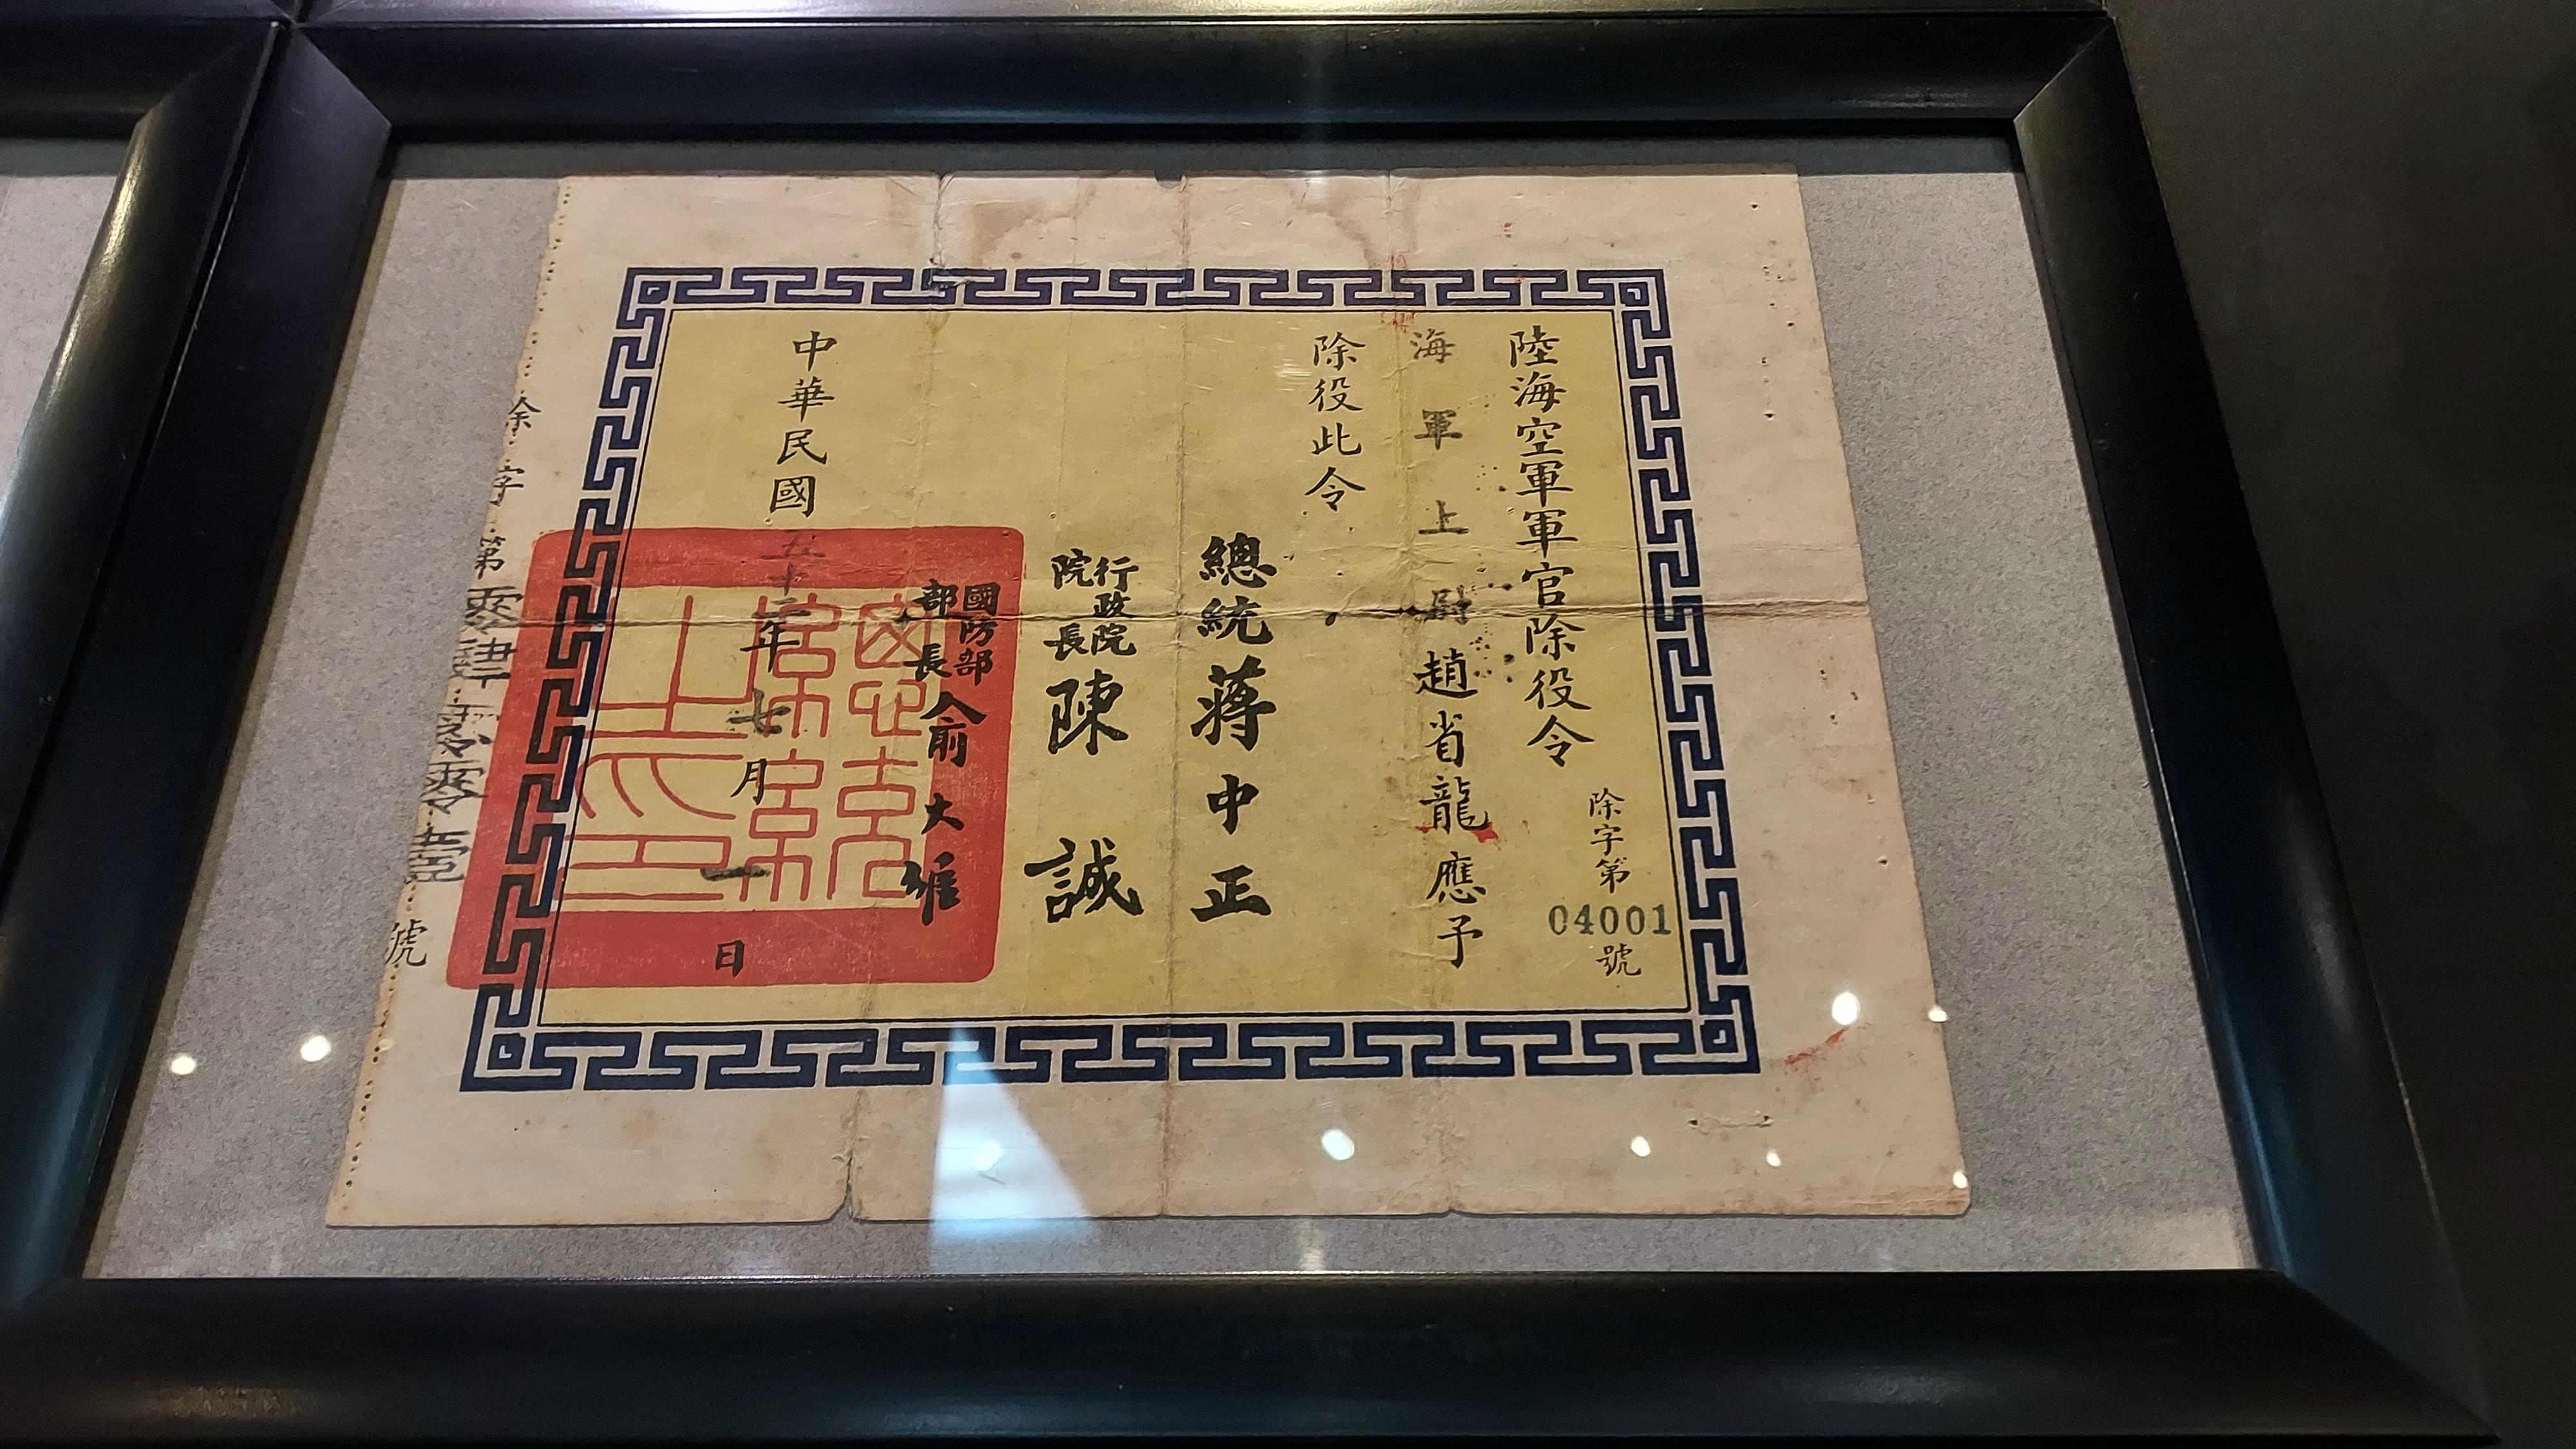 陸海空軍軍官除役令
除字第04001號
海軍上尉趙省龍應予
除役此令
總統蔣中正
行政院院長陳誠
國防部部長俞大維
中華民國五十二年七月一日
總統之印
除字第零肆零零壹號